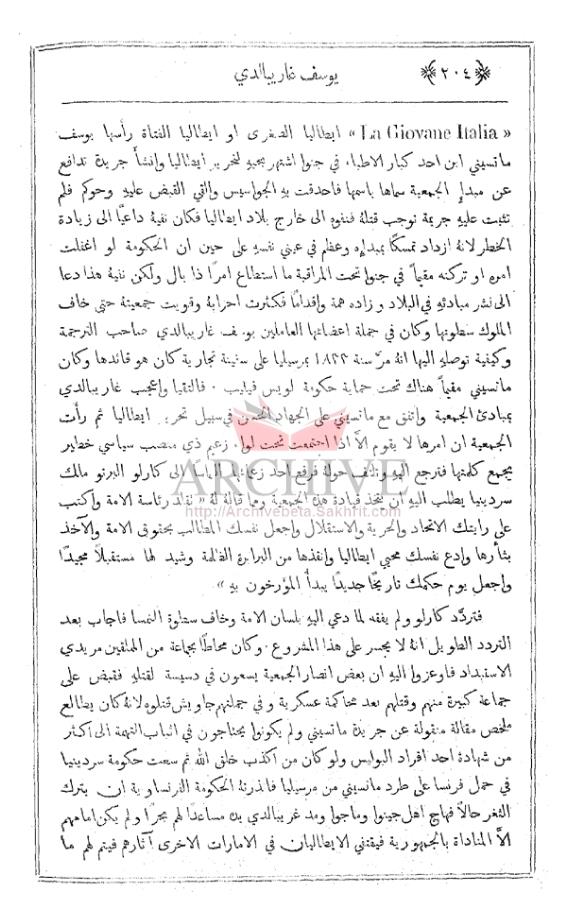 ﴿٢٠٤﴾ يوسف غاريبالدي
«La Giovane Italia» ايطاليا الصغرى او ايطاليا الفتاة رأسها يوسف
ماتسيني ابن احد كبار الاطباء في جنوا اشتهر بحبه لتحرير ايطاليا وانشأ جريدة تدافع
عن مبدإ الجمعية سماها باسمها فاحدقت به الجواسيس والقي القبض عليه وحوكم فلم
تثبت عليه جريمة توجب قتله فنفوه الى خارج بلاد ايطاليا فكان نفيه داعيًا الى زيادة
الخطر لانه ازداد تمسكًا بمبداه وعظم في عيني نفسه على حين ان الحكومة لو اغفلت
امره او تركته مقيماً في جنوا تحت المراقبة ما استطاع امرًا ذا بال ولكن نفيه هذا دعا
الى نشر مبادئه في البلاد وزاده همة واقدامًا فكثرت احزابه وقويت جمعيته حتى خاف
الملوك سطوتها وكان في جملة اعضائها العاملين يوسف غاريبالدي صاحب الترجمة
وكيفية توصله اليها انه مرّ سنة ١٨٣٣ بمرسيليا على سفينة تجارية كان هو قائدها وكان
ماتسيني مقيماً هناك تحت حماية حكومة لويس فيليب . فالتقيا واعجب غاريبالدي
بمبادئ الجمعية واتفق مع ماتسيني على الجهاد في سبيل تحرير ايطاليا ثم رأت
الجمعية ان امرها لا يقوم الاّ اذا اجتمعت تحت لواء زعيم ذي منصب سياسي خطير
يجمع كلمتها فترجع اليه وتلتف حوله فرفع احد زعمائها الى كارلو البرتو ملك
سردينيا يطلب اليه ان يتخذ قيادة هذه الجمعية ومما قاله له « تقلد رئاسة الامة واكتب
على رايتك الاتحاد والحرية والاستقلال واجعل نفسك المطالب بحقوق الامة والآخذ
بثأرها وادع نفسك محيي ايطاليا وانقذها من البرابرة الظلمة وشيد لها مستقبلاً مجيدًا
واجعل يوم حكمك تاريخًا جديدًا يبدأ المؤرخون به »
فتردّد كارلو ولم يفقه لما دعي اليه بلسان الامة وخاف سطوة النمسا فاجاب بعد
التردد الطويل انه لا يجسر على هذا المشروع . وكان محاطًا بجماعة من الملقين مريدي
الاستبداد فاوعزوا اليه ان بعض انصار الجمعية يسعون في دسيسة لقتله فقبض على
جماعة كبيرة منهم وقتلهم بعد محاكمة عسكرية وفي جملتهم جاويش قتلوه لانه كان يطالع
ملخص مقالة منقولة عن جريدة ماتسيني ولم يكونوا يحتاجون في اثبات التهمة الى اكثر
من شهادة احد افراد البوليس ولو كان من اكذب خلق الله ثم سعت حكومة سردينيا
في حمل فرنسا على طرد ماتسيني من مرسيليا فانذرته الحكومة الفرنساوية ان يترك
الثغر حالاً فهاج اهل جينوا وماجوا ومد غريبالدي يده مساعدًا لهم بحرًا ولم يكن امامهم
الاّ المناداة بالجمهورية فيقتفي الايطاليان في الامارات الاخرى آثارهم فيتم لهم ما
ARCHIVE
http://Archivebeta.Sakhrit.com